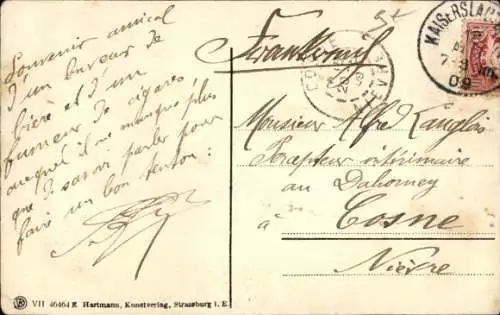 Souvenir amical
d'un buveur de
bière et d'un
fumeur de cigares
auquel il ne manque plus
que de savoir parler pour
faire un bon teuton :
Frankreich
KAISERSLAU
7-8
09
Monsieur Alfred Langlois
intérimaire
au Dahomey
à Cosne
Nièvre
VII 46464 E. Hartmann, Kunstverlag, Strassburg i. E.